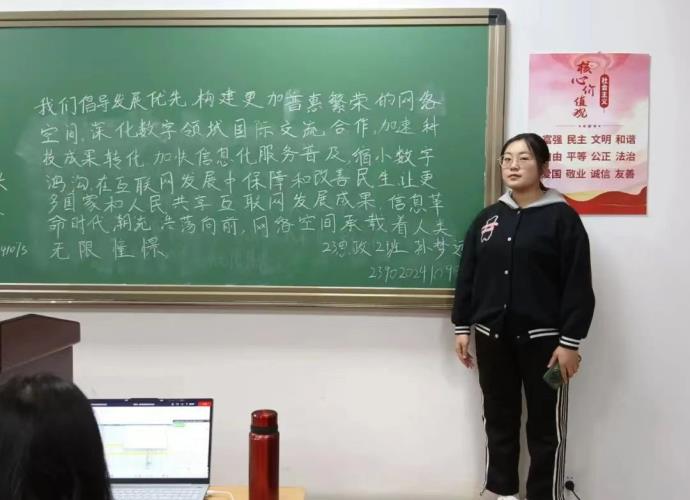 我们倡导发展优先,构建更加普惠繁荣的网络
空间,深化数字领域国际交流合作,加速科
技成果转化,加快信息化服务普及,缩小数字
鸿沟,在互联网发展中保障和改善民生,让更
多国家和人民共享互联网发展成果,信息革
命时代,荡向前,网络空间承载着人类
无限憧憬 23思政2班 孙梦
社会主义
核心价值观
富强 民主 文明 和谐
自由 平等 公正 法治
爱国 敬业 诚信 友善